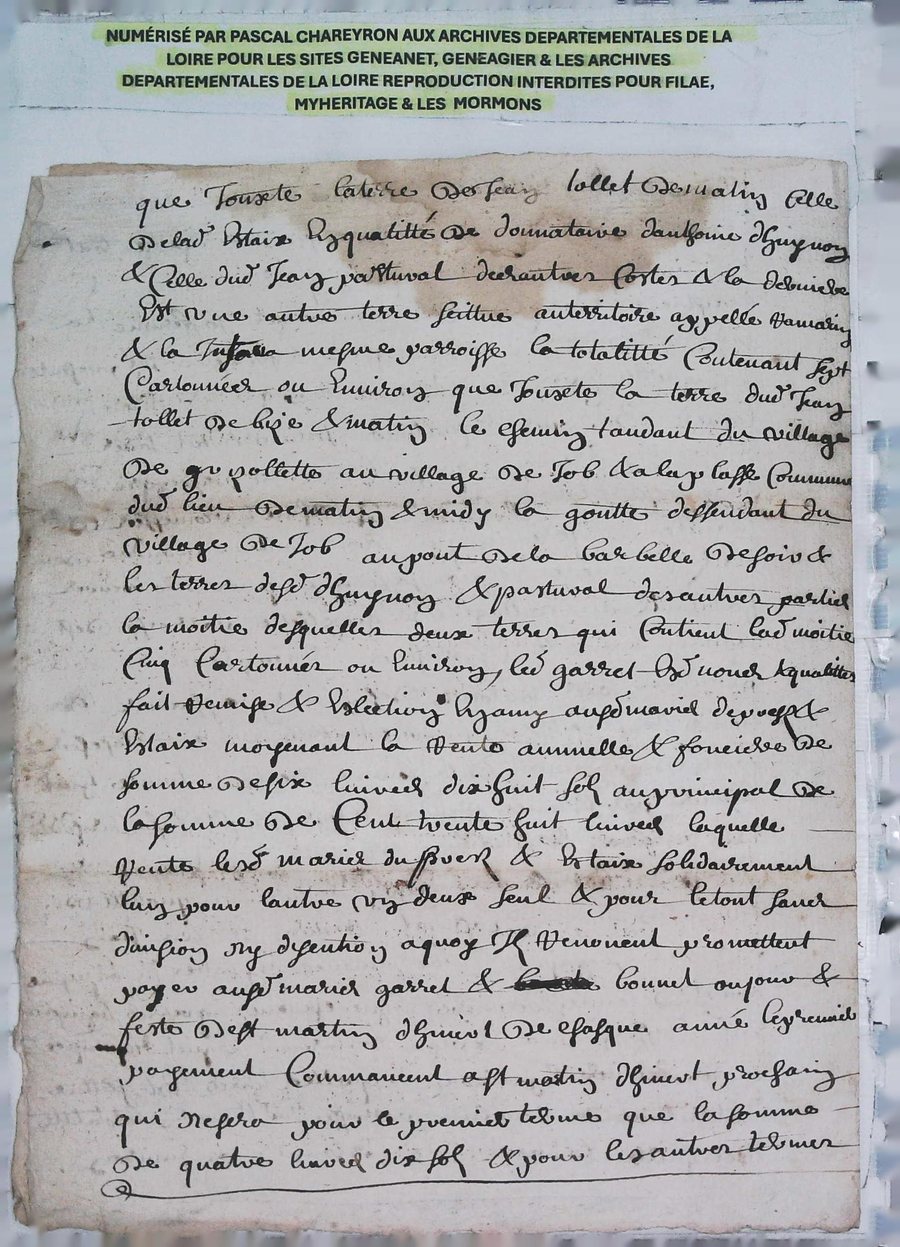 NUMÉRISÉ PAR PASCAL CHAREYRON AUX ARCHIVES DEPARTEMENTALES DE LA
LOIRE POUR LES SITES GENEANET, GENEAGIER & LES ARCHIVES
DEPARTEMENTALES DE LA LOIRE REPRODUCTION INTERDITES POUR FILAE,
MYHERITAGE & LES MORMONS
que Jouxte la terre de Jean tollet de matin Celle
de lad Estaix En qualitté de donnataire danthoine dhugnon
& Celle dud Jean pasturval des autres Costes & la derniere
Est vne autre terre scittue au territoire appellé
& la mesme parroisse la totalitté Contenant sept
Cartonneés ou Environ que Jouxte la terre dud Jean
tollet de bize & matin le chemin tandant du village
de au village de Job & a la plasse Commune
dud lieu de matin & midy la goutte dessendant du
village de Job au pont de la barbelle de soir &
les terres desd dhugnon & pasturval des autres parties
la moitie desquelles deux terres qui Contient lad moitie
Cinq Cartonneés ou Environ, led garret Esd noms & qualittes
fait Remise & Eslection En amy ausd maries &
Estaix moyenant la Rente annuelle & fonciere de
somme de six livres dix huit sols au principal de
la somme de Cent trente huit livres laquelle
Rente lesd maries & Estaix solidairement
lun pour lautre vn deux seul & pour le tout sans
division ny disention a quoy Ils Renoncent promettent
payer ausd maries garret & bonnet au jour &
feste de st martin dhivert de chasque année le premier
payement Commancent a st matin dhivert prochain
qui ne sera pour le premier terme que la somme
de quatre livres dix sols & pour les autres termes